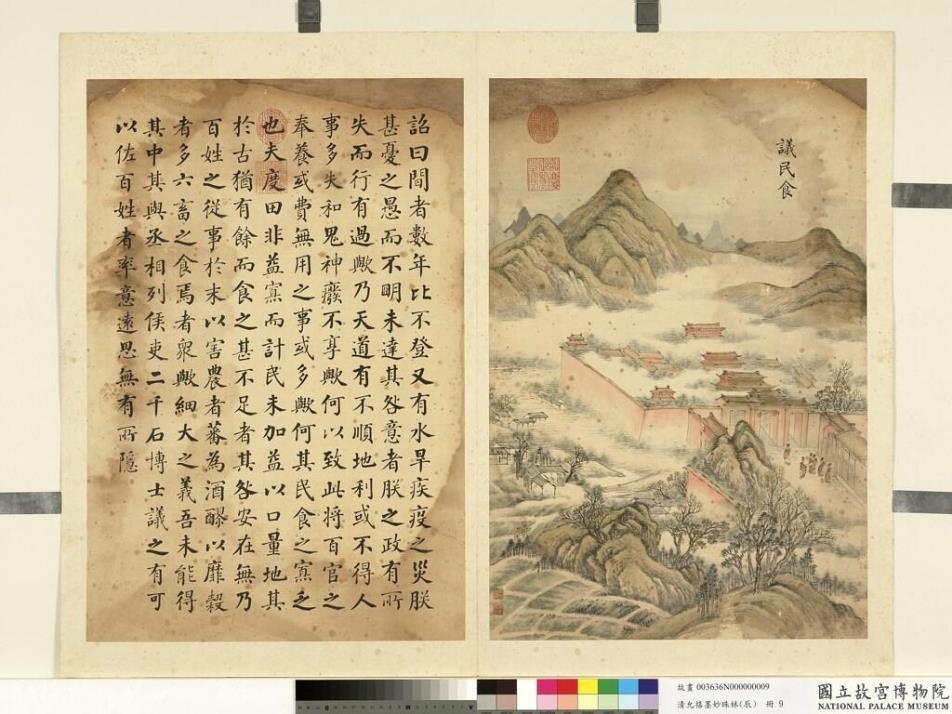 議民食
詔曰間者數年比不登又有水旱疾疫之災朕
甚憂之愚而不明未達其咎意者朕之政有所
失而行有過歟乃天道有不順地利或不得人
事多失和鬼神癈不享歟何以致此將百官之
奉養或費無用之事或多歟何其民食之寡乏
也夫度田非益寡而計民未加益以口量地其
於古猶有餘而食之甚不足者其咎安在無乃
百姓之從事於末以害農者蕃為酒醪以靡穀
者多六畜之食焉者衆歟細大之義吾未能得
其中其與丞相列侯吏二千石博士議之有可
以佐百姓者率意遠思無有所隱
故畫 003636N000000009
清允禧墨妙珠林(辰) 冊 9
國立故宮博物院
NATIONAL PALACE MUSEUM